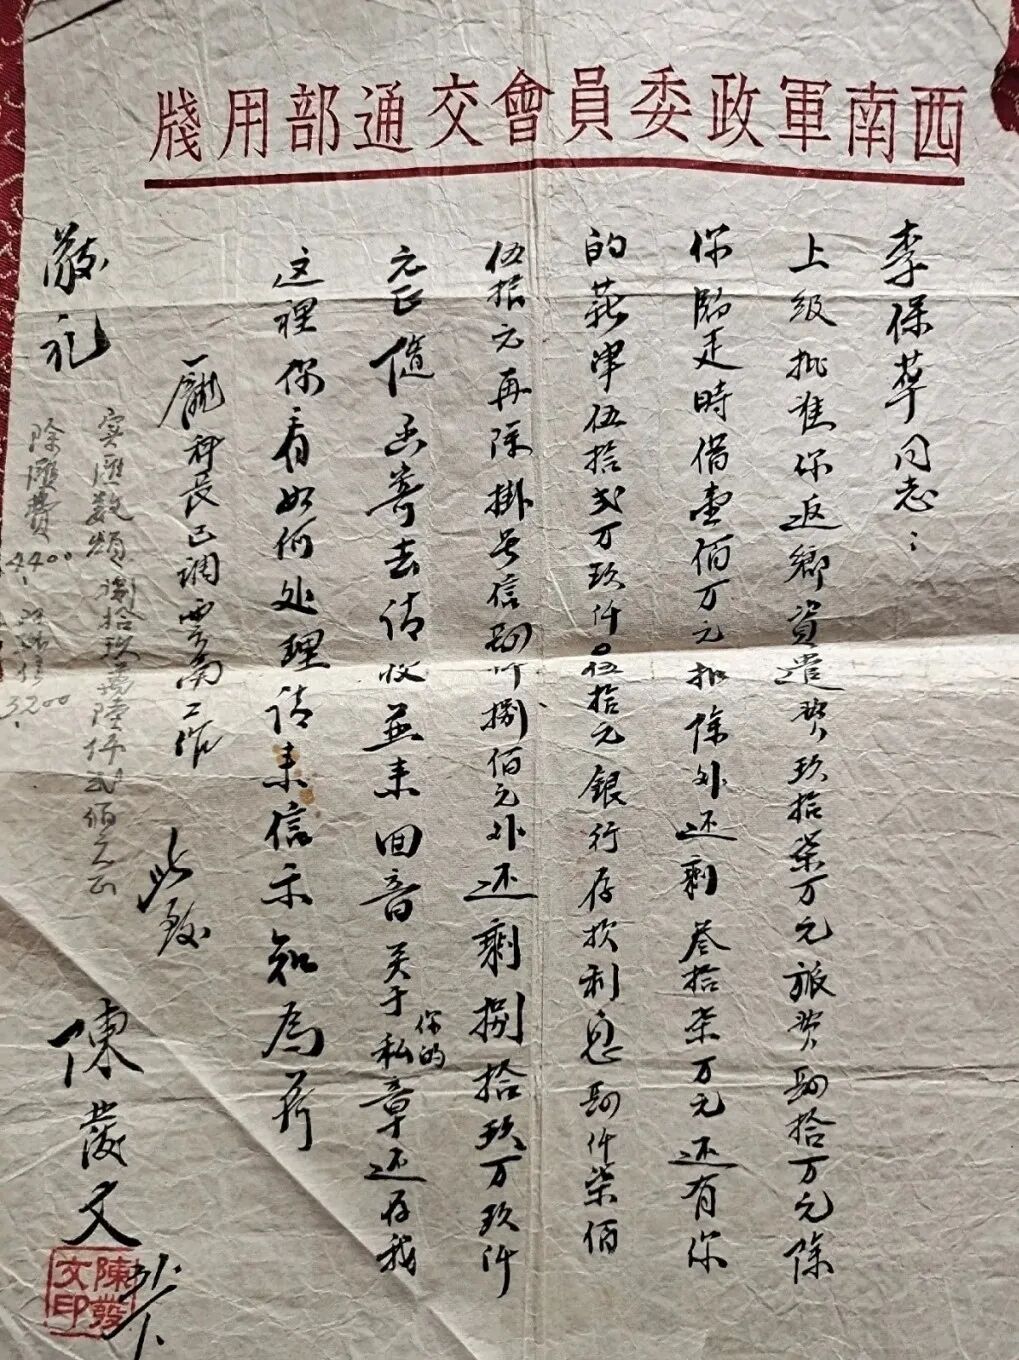 西南軍政委員會交通部用牋
李保華同志：
上级批准你返鄉資遣费玖拾柒万元旅费肆拾万元除
你臨走時借壹佰万元扣除外还剩叁拾柒万元还有你
的薪津伍拾弍万玖仟〇伍拾元銀行存款利息肆仟柒佰
伍拾元再除掛号信肆仟捌佰元外还剩捌拾玖万玖仟
元正随函寄去请收並来回音关于你的私章还存我
这裡你看如何处理请来信示知為荷
龐科長已調雲南工作
此致
敬礼
陳發文
实匯数額捌拾玖萬陸仟弍佰元正
除匯費4400
3200
陳發文印